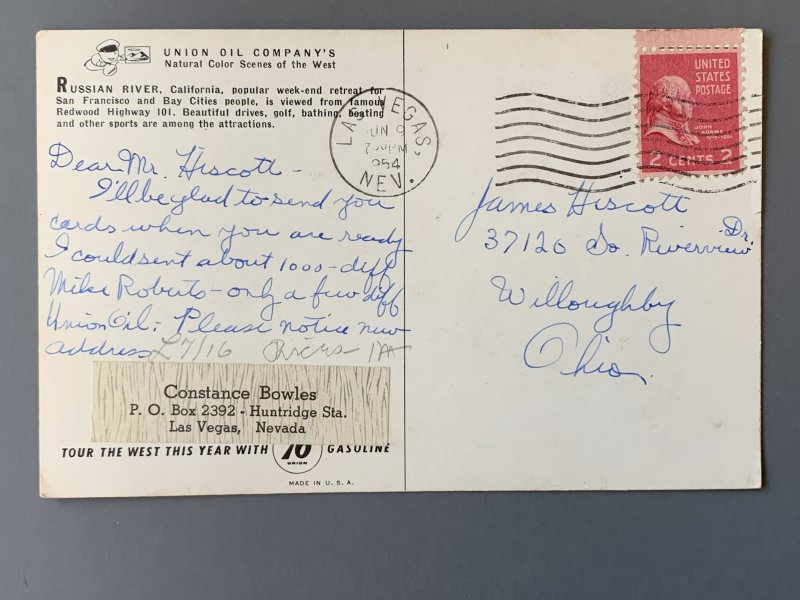 UNION OIL COMPANY'S
Natural Color Scenes of the West
RUSSIAN RIVER, California, popular week-end retreat for
San Francisco and Bay Cities people, is viewed from famous
Redwood Highway 101. Beautiful drives, golf, bathing, boating
and other sports are among the attractions.
LAS VEGAS,
JUN 9
PM
1954
NEV.
UNITED
STATES
POSTAGE
JOHN
ADAMS
2 CENTS 2
Dear Mr. Hiscott -
I'll be glad to send you
cards when you are ready
I could sent about 1000 - diff
Mike Roberts - only a few diff
Union Oil. Please notice new
address
L7/16
James Hiscott
37120 So. Riverview Dr.
Willoughby
Ohio.
Constance Bowles
P. O. Box 2392 - Huntridge Sta.
Las Vegas, Nevada
TOUR THE WEST THIS YEAR WITH 76 UNION GASOLINE
MADE IN U. S. A.